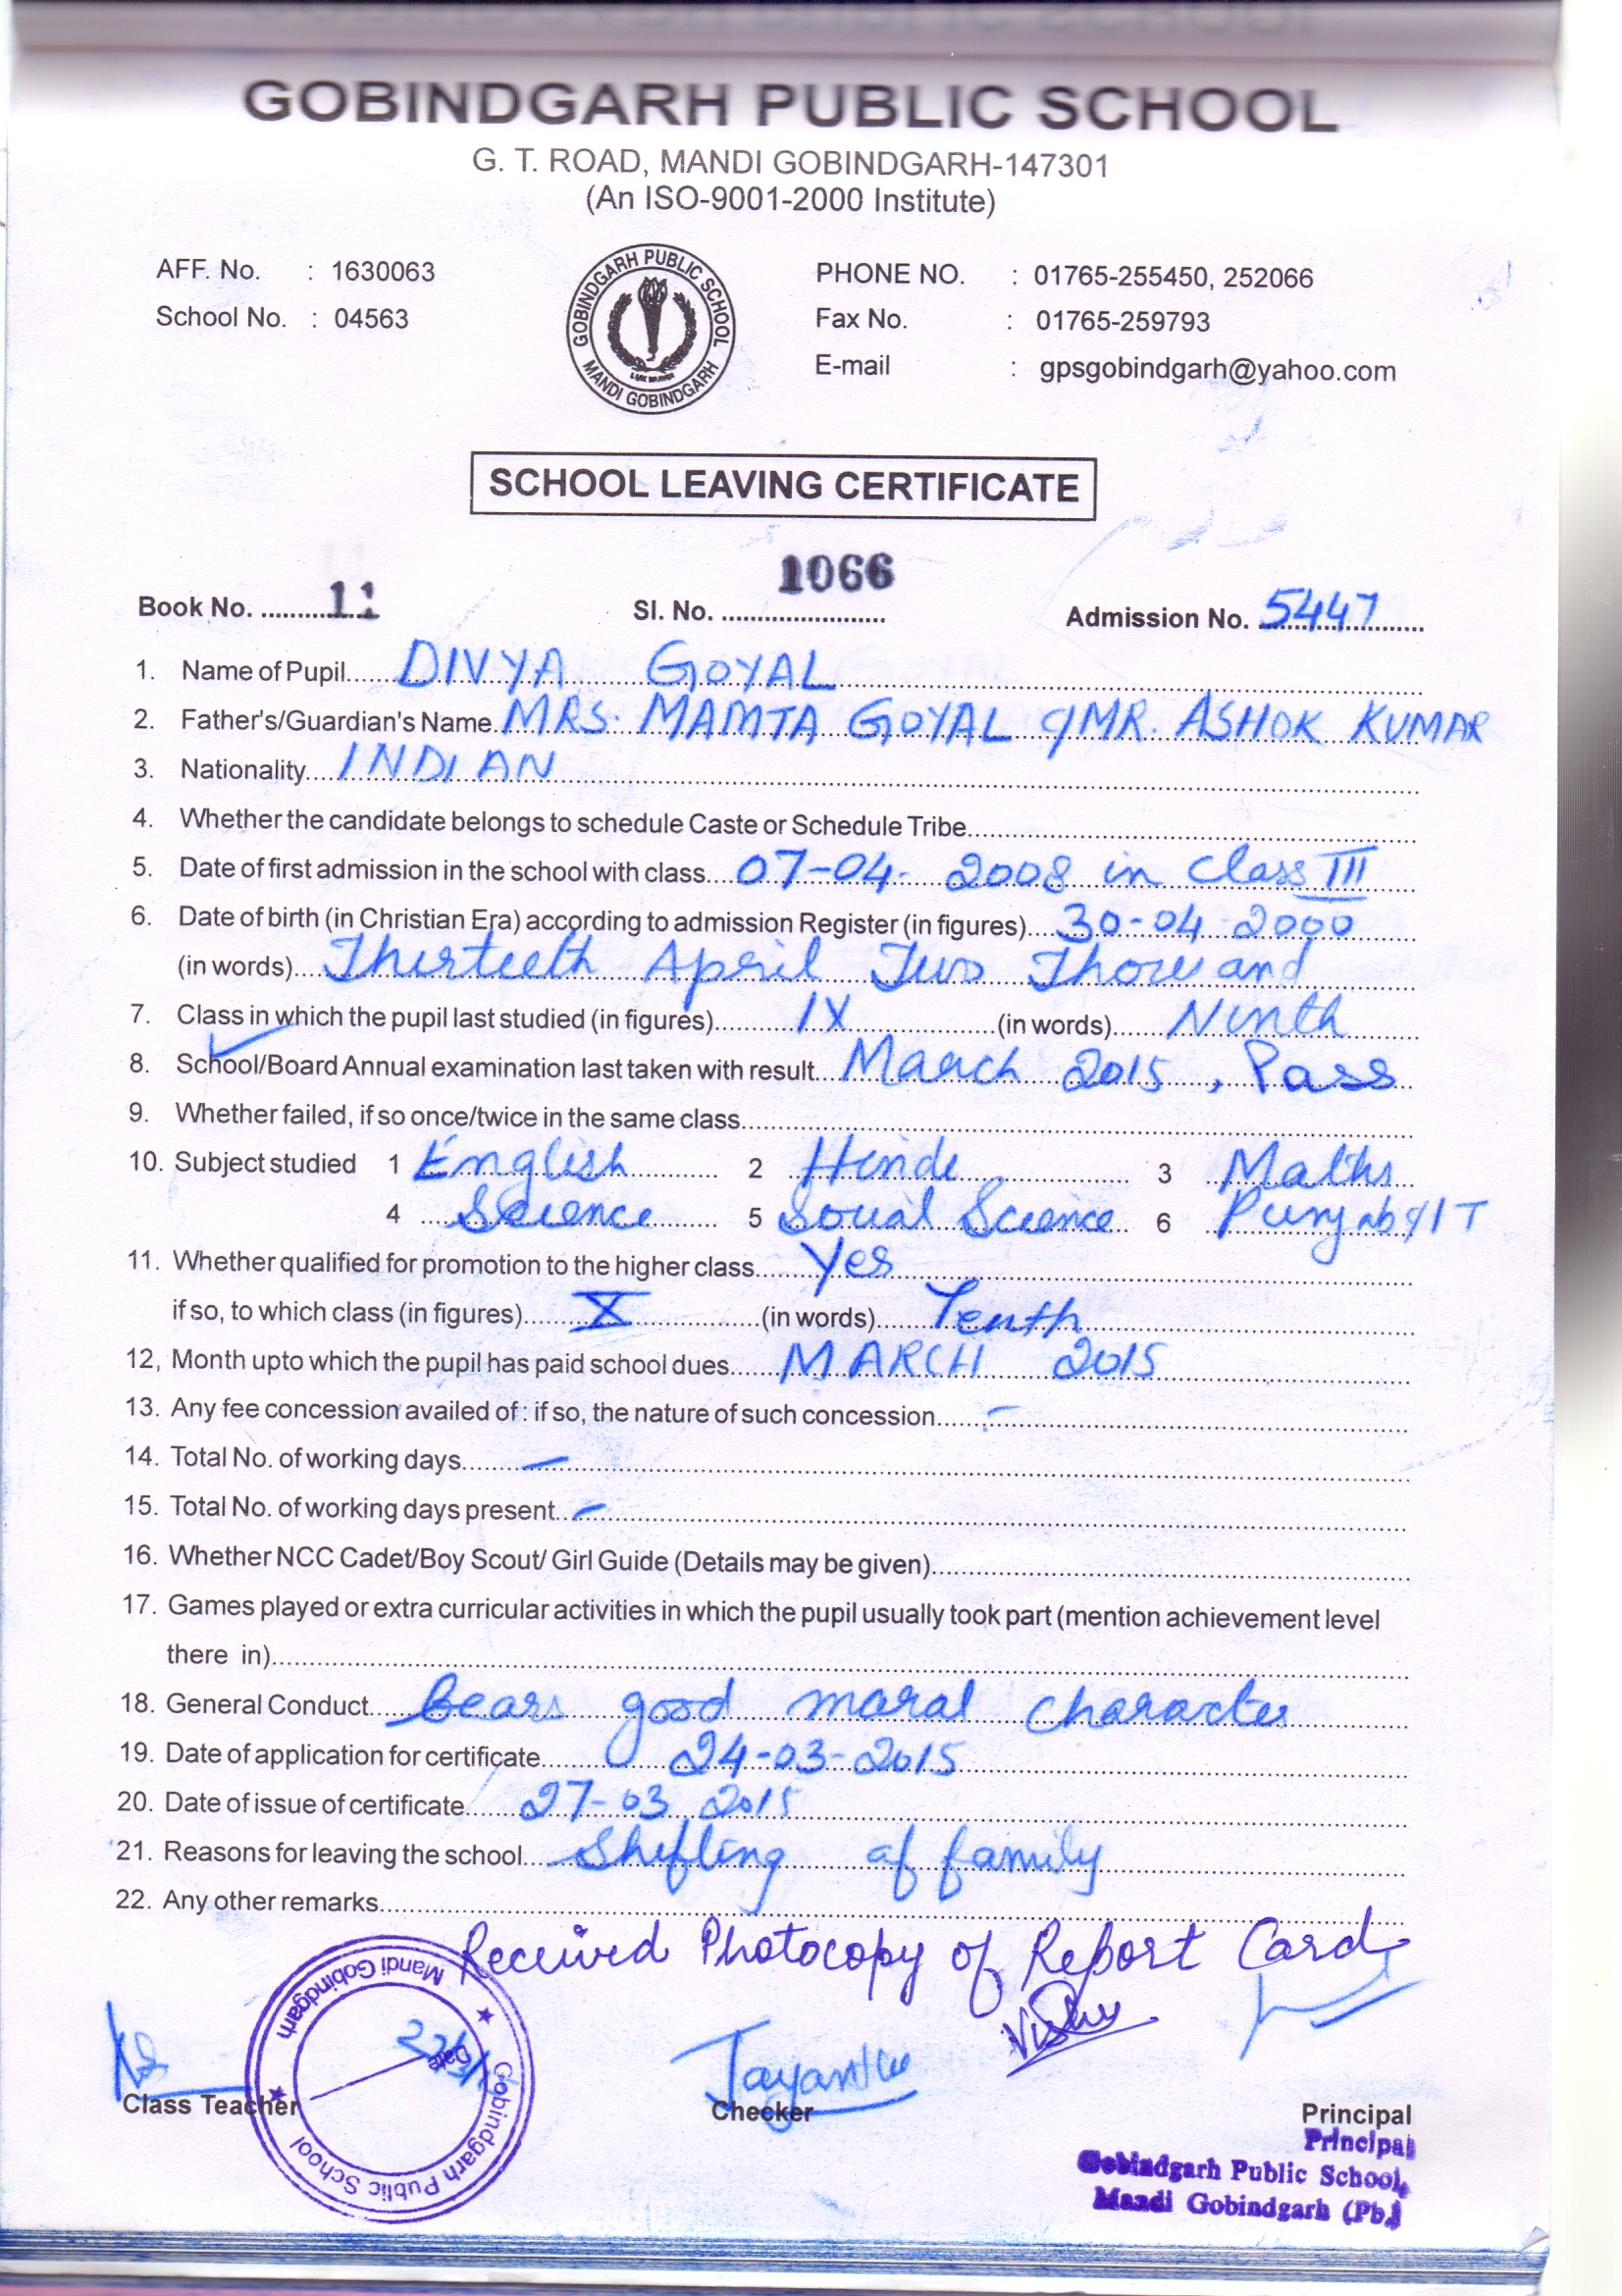 GOBINDGARH PUBLIC SCHOOL
G. T. ROAD, MANDI GOBINDGARH-147301
(An ISO-9001-2000 Institute)
AFF. No. : 1630063
School No. : 04563
GOBINDGARH PUBLIC SCHOOL
MANDI GOBINDGARH
PHONE NO. : 01765-255450, 252066
Fax No. : 01765-259793
E-mail : gpsgobindgarh@yahoo.com
SCHOOL LEAVING CERTIFICATE
Book No. 11 Sl. No. 1066 Admission No. 5447
1. Name of Pupil DIVYA GOYAL
2. Father's/Guardian's Name MRS. MAMTA GOYAL & MR. ASHOK KUMAR
3. Nationality INDIAN
4. Whether the candidate belongs to schedule Caste or Schedule Tribe
5. Date of first admission in the school with class 07-04-2008 in Class III
6. Date of birth (in Christian Era) according to admission Register (in figures) 30-04-2000
(in words) Thirteeth April Two Thousand
7. Class in which the pupil last studied (in figures) IX (in words) Ninth
8. School/Board Annual examination last taken with result March 2015, Pass
9. Whether failed, if so once/twice in the same class
10. Subject studied 1 English 2 Hindi 3 Maths
4 Science 5 Social Science 6 Punjabi/IT
11. Whether qualified for promotion to the higher class Yes
if so, to which class (in figures) X (in words) Tenth
12, Month upto which the pupil has paid school dues MARCH 2015
13. Any fee concession availed of : if so, the nature of such concession –
14. Total No. of working days –
15. Total No. of working days present –
16. Whether NCC Cadet/Boy Scout/ Girl Guide (Details may be given)
17. Games played or extra curricular activities in which the pupil usually took part (mention achievement level
there in)
18. General Conduct Bears good moral character
19. Date of application for certificate 24-03-2015
20. Date of issue of certificate 27-03 2015
21. Reasons for leaving the school Shifting of family
22. Any other remarks
Received Photocopy of Report Card
Gobindgarh Public School
Mandi Gobindgarh
Date
Class Teacher Checker Principal
Principal
Gobindgarh Public School,
Mandi Gobindgarh (Pb.)